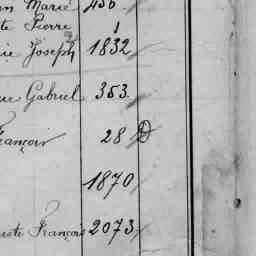 Marie 456
Pierre 1
Joseph 1832
Gabriel 353
François 28 D
1870
François 2073